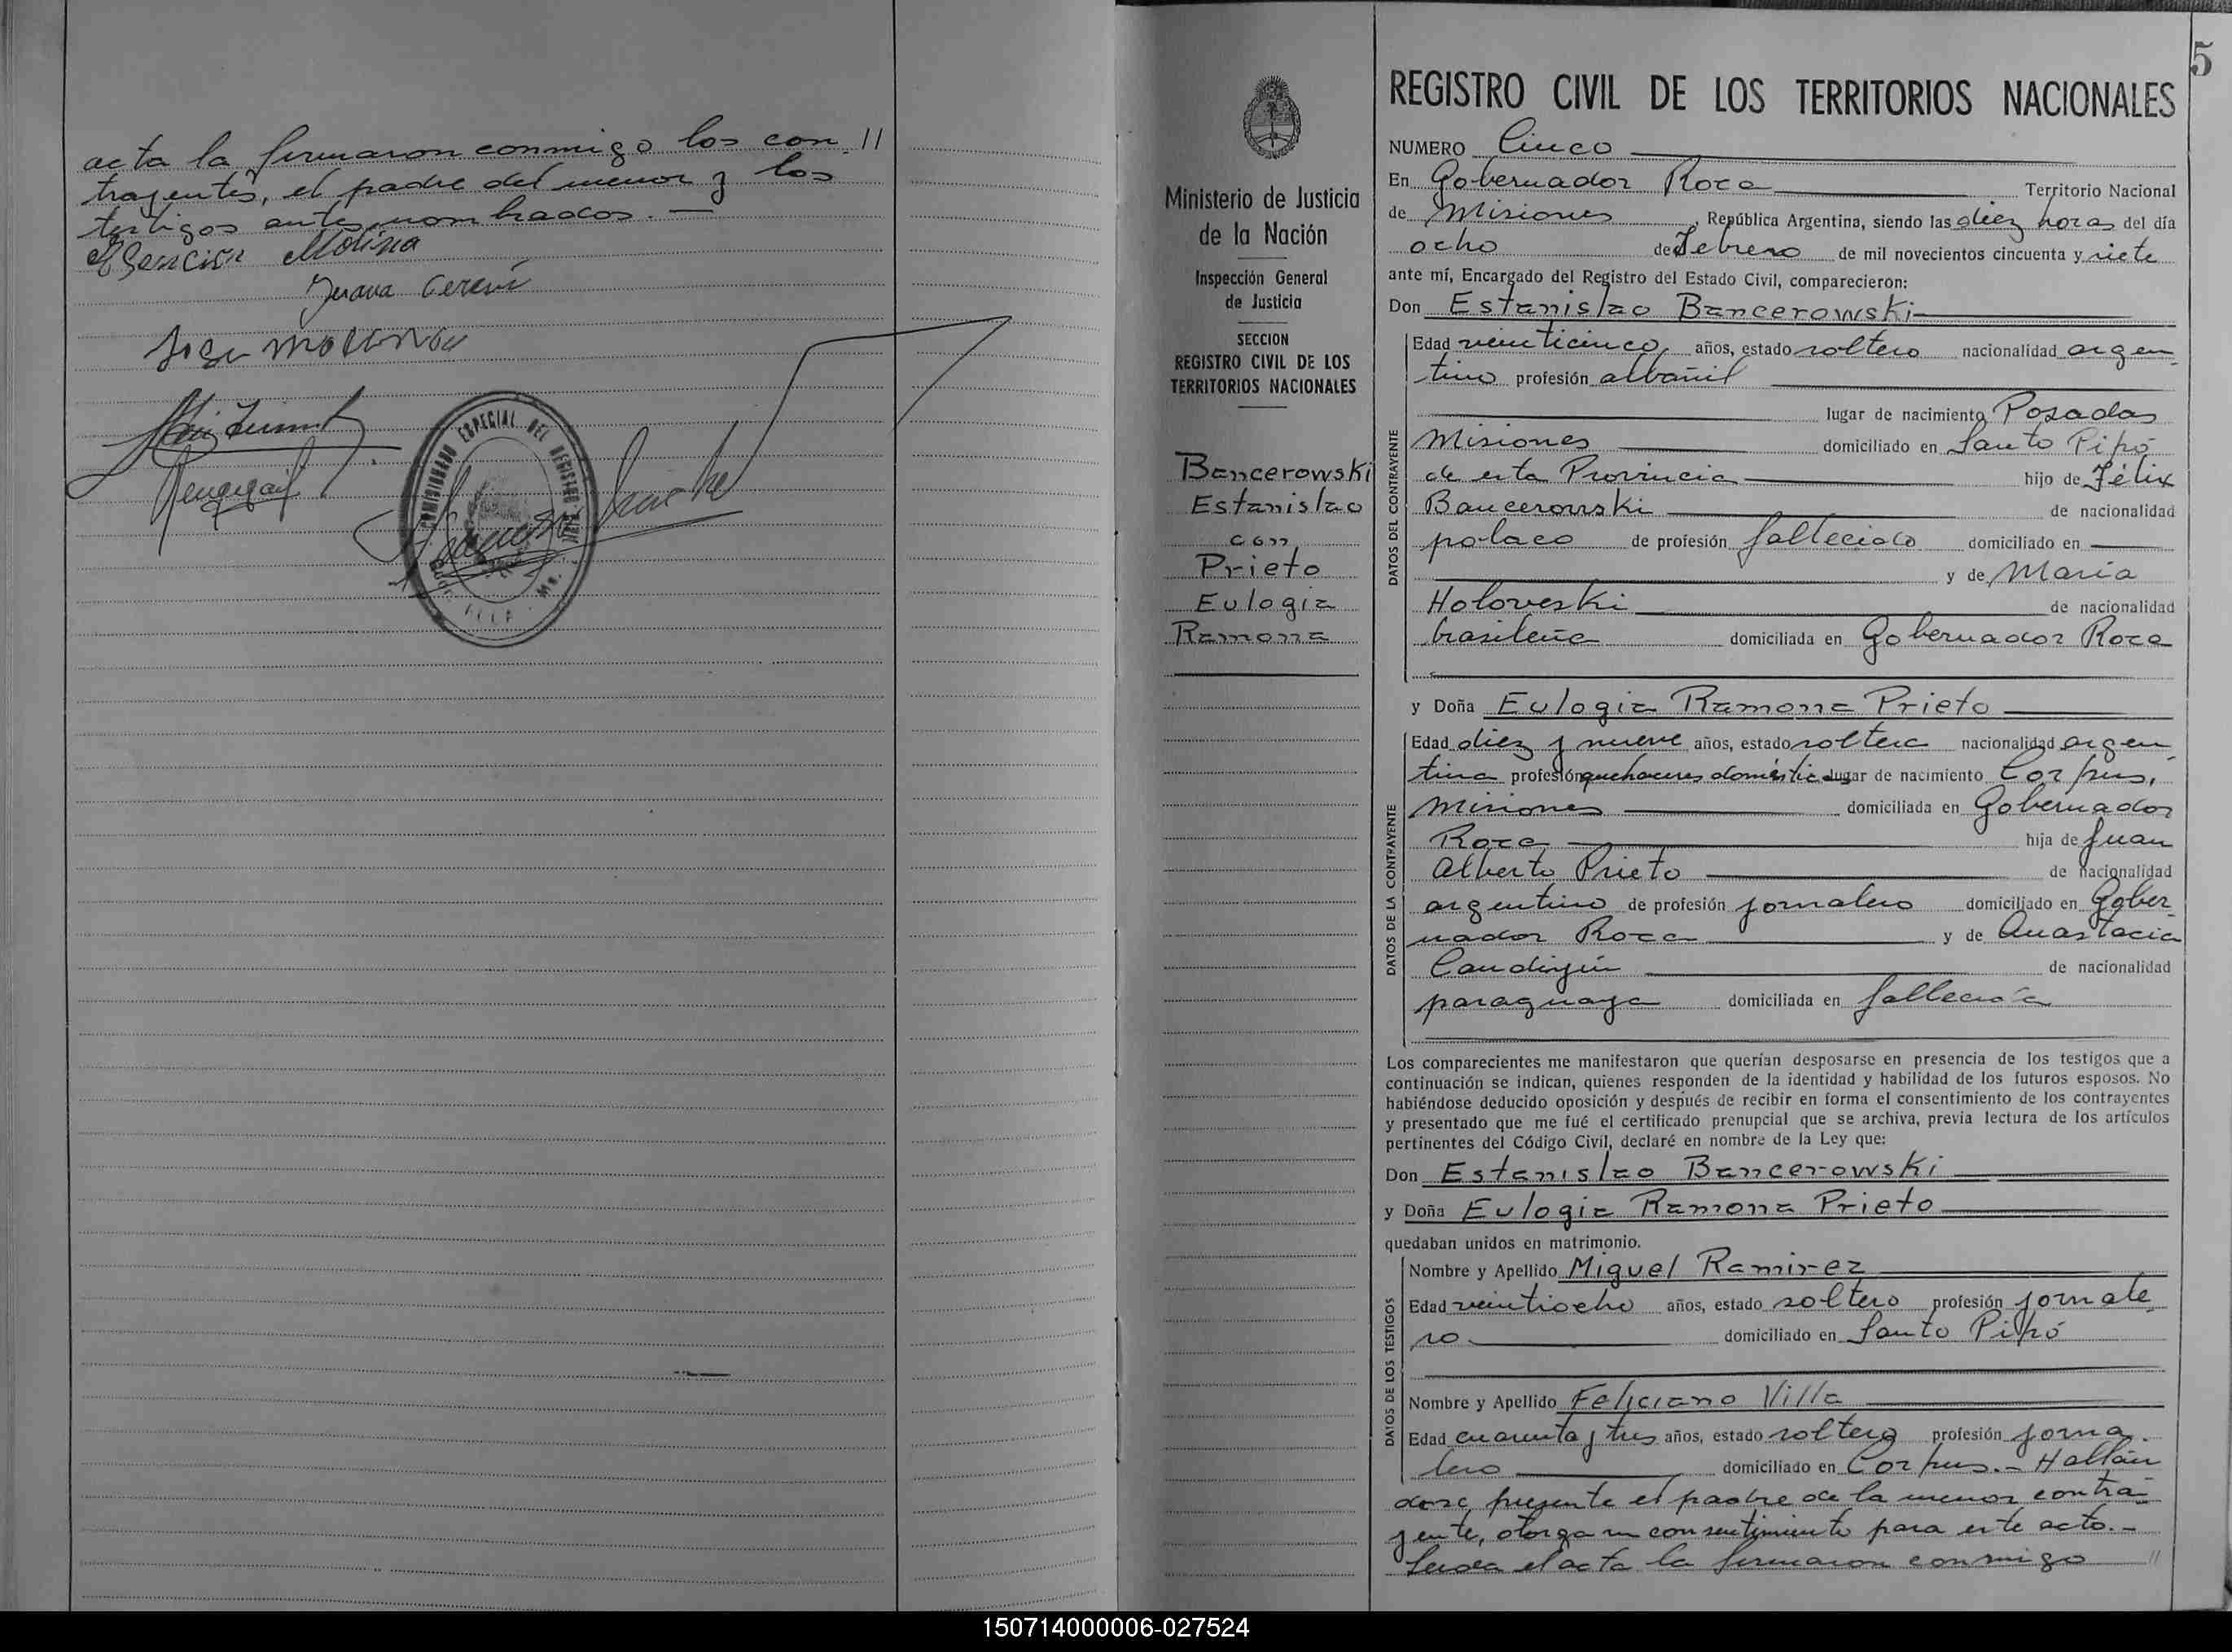 acta la firmaron conmigo los con- //
trayentes, el padre del menor y los
testigos antes nombrados. —
Molina
Juana
COMISIONADO ESPECIAL DEL REGISTRO CIVIL
5
Ministerio de Justicia
de la Nación
Inspección General
de Justicia
SECCION
REGISTRO CIVIL DE LOS
TERRITORIOS NACIONALES
Bancerowski
Estanislao
con
Prieto
Eulogia
Ramona
REGISTRO CIVIL DE LOS TERRITORIOS NACIONALES
NUMERO Cinco
En Gobernador Roca Territorio Nacional
de Misiones, República Argentina, siendo las diez horas del día
ocho de Febrero de mil novecientos cincuenta y siete
ante mí, Encargado del Registro del Estado Civil, comparecieron:
Don Estanislao Bancerowski
DATOS DEL CONTRAYENTE
Edad veinticinco, años, estado soltero nacionalidad argen-
tino profesión albañil
lugar de nacimiento Posadas
Misiones domiciliado en Santo Pipó
de esta Provincia hijo de Félix
Bancerowski de nacionalidad
polaco de profesión fallecido domiciliado en
y de María
Holoveski de nacionalidad
brasileña domiciliada en Gobernador Roca
y Doña Eulogia Ramona Prieto
DATOS DE LA CONTRAYENTE
Edad diez y nueve años, estado soltera nacionalidad argen
tina profesión quehaceres doméstic lugar de nacimiento Corpus,
Misiones domiciliada en Gobernador
Roca hija de Juan
Alberto Prieto de nacionalidad
argentino de profesión jornalero domiciliado en Gober-
nador Roca y de Anastacia
de nacionalidad
paraguaya domiciliada en fallecida
Los comparecientes me manifestaron que querían desposarse en presencia de los testigos que a
continuación se indican, quienes responden de la identidad y habilidad de los futuros esposos. No
habiéndose deducido oposición y después de recibir en forma el consentimiento de los contrayentes
y presentado que me fué el certificado prenupcial que se archiva, previa lectura de los artículos
pertinentes del Código Civil, declaré en nombre de la Ley que:
Don Estanislao Bancerowski
y Doña Eulogia Ramona Prieto
quedaban unidos en matrimonio.
DATOS DE LOS TESTIGOS
Nombre y Apellido Miguel Ramirez
Edad veintiocho años, estado soltero profesión jornale-
ro domiciliado en Santo Pipó
Nombre y Apellido Feliciano Villa
Edad cuarenta y tres años, estado soltero profesión jorna-
lero domiciliado en Corpus.- Hallán
dose presente el padre de la menor contra-
yente, otorga su consentimiento para este acto.-
Leída el acta la firmaron conmigo //
150714000006-027524